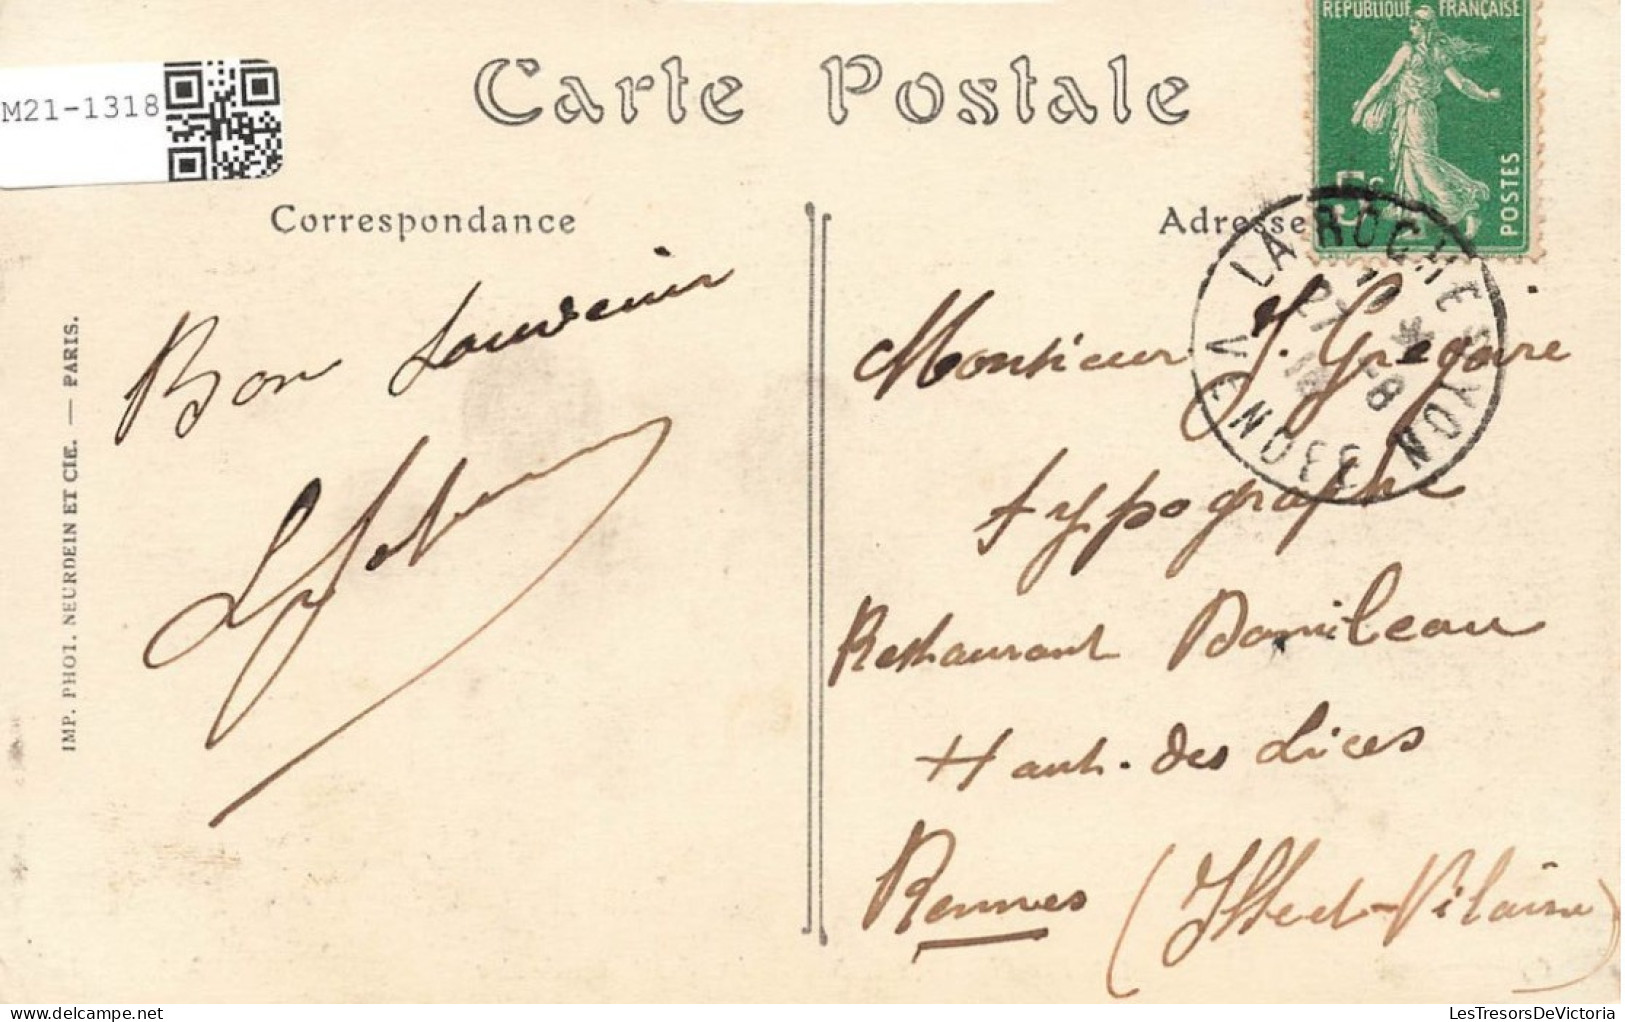 RÉPUBLIQUE FRANÇAISE
Carte Postale
M21-1318
5c
POSTES
Correspondance
Adresse
LA ROCHE S YON
VENDÉE
Bon Souvenir
Monsieur J. Gregoire
typographe
Restaurant
Haut. des Lices
Rennes (Ille et-Vilaine)
IMP. PHOT. NEURDEIN ET CIE. — PARIS.
LesTresorsDeVictoria
delcampe.net